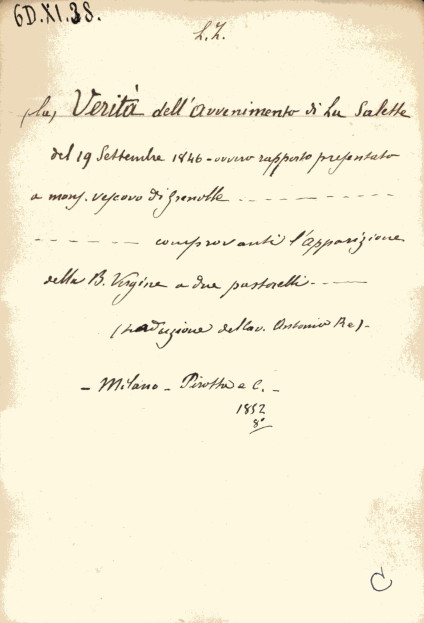 6D.XI.38.
L.Z.
(la) Verità dell'avvenimento di La Salette
del 19 Settembre 1846 - ovvero rapporto presentato
a mons. vescovo di Grenoble - - - - - - - - - -
- - - - - - - comprovanti l'apparizione
della B. Vergine a due pastorelli - - - -
(traduzione dell'av. Antonio Re) -
- Milano - Pirotta e C. -
1852
8°
C